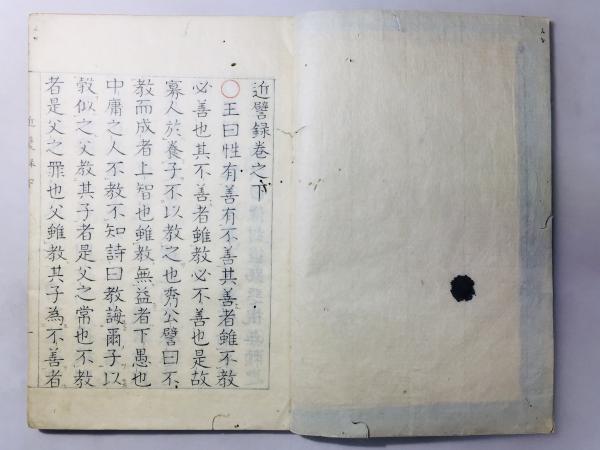 近譬録卷之下
○王曰性有善有不善其善者雖不教
必善也其不善者雖教必不善也是故
寡人於養子不以教之也秀公譬曰不
教而成者上智也雖教無益者下愚也
中庸之人不教不知詩曰教誨爾子以
穀似之父教其子者是父之常也不教
者是父之罪也父雖教其子為不善者